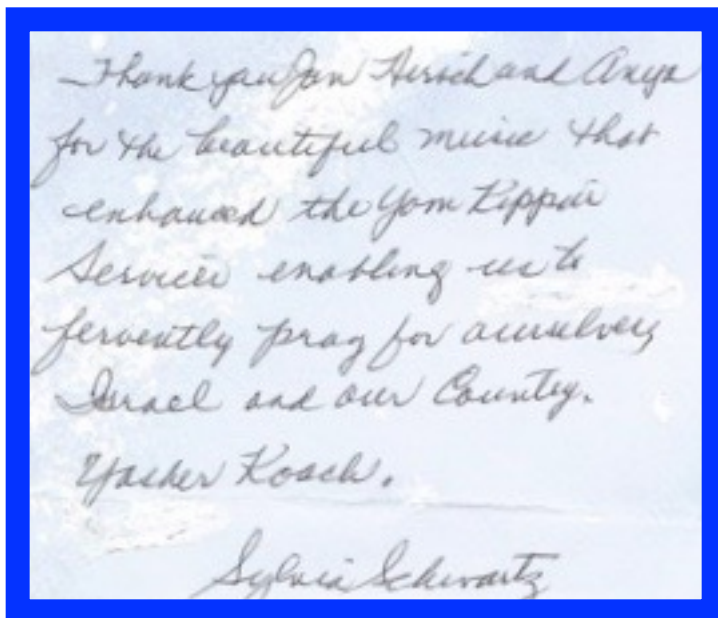 Thank you Jan Hersch and Anya
for the beautiful music that
enhanced the Yom Kippur
Services enabling us to
fervently pray for ourselves,
Israel and our Country.
Yasher Koach.
Sylvia Schwartz